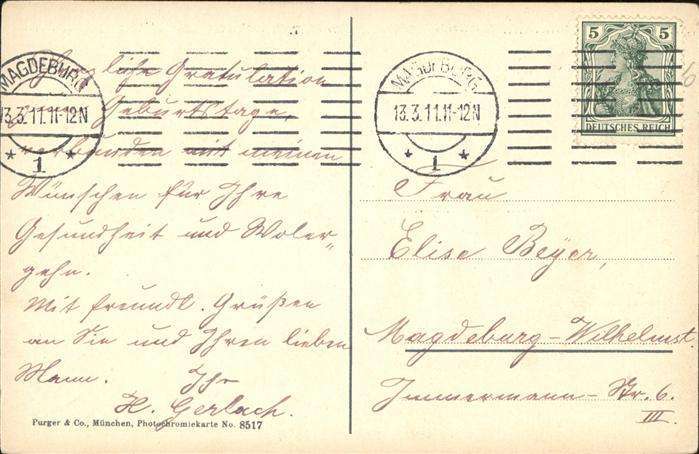 MAGDEBURG
13.3.11.11-12N
* 1 *
MAGDEBURG
13.3.11.11-12N
* 1 *
5 5
DEUTSCHES REICH
Herzliche Gratulation
zum Geburtstage,
verbunden mit meinen
Wünschen für Ihre
Gesundheit und Woler-
gehn.
Mit freundl. Grüßen
an Sie und Ihren lieben
Mann. Ihr
H. Gerlach.
Purger & Co., München, Photochromiekarte No. 8517
Frau
Elise Beyer,
Magdeburg-Wilhelmst.
Immermann-Str. 6.
III.